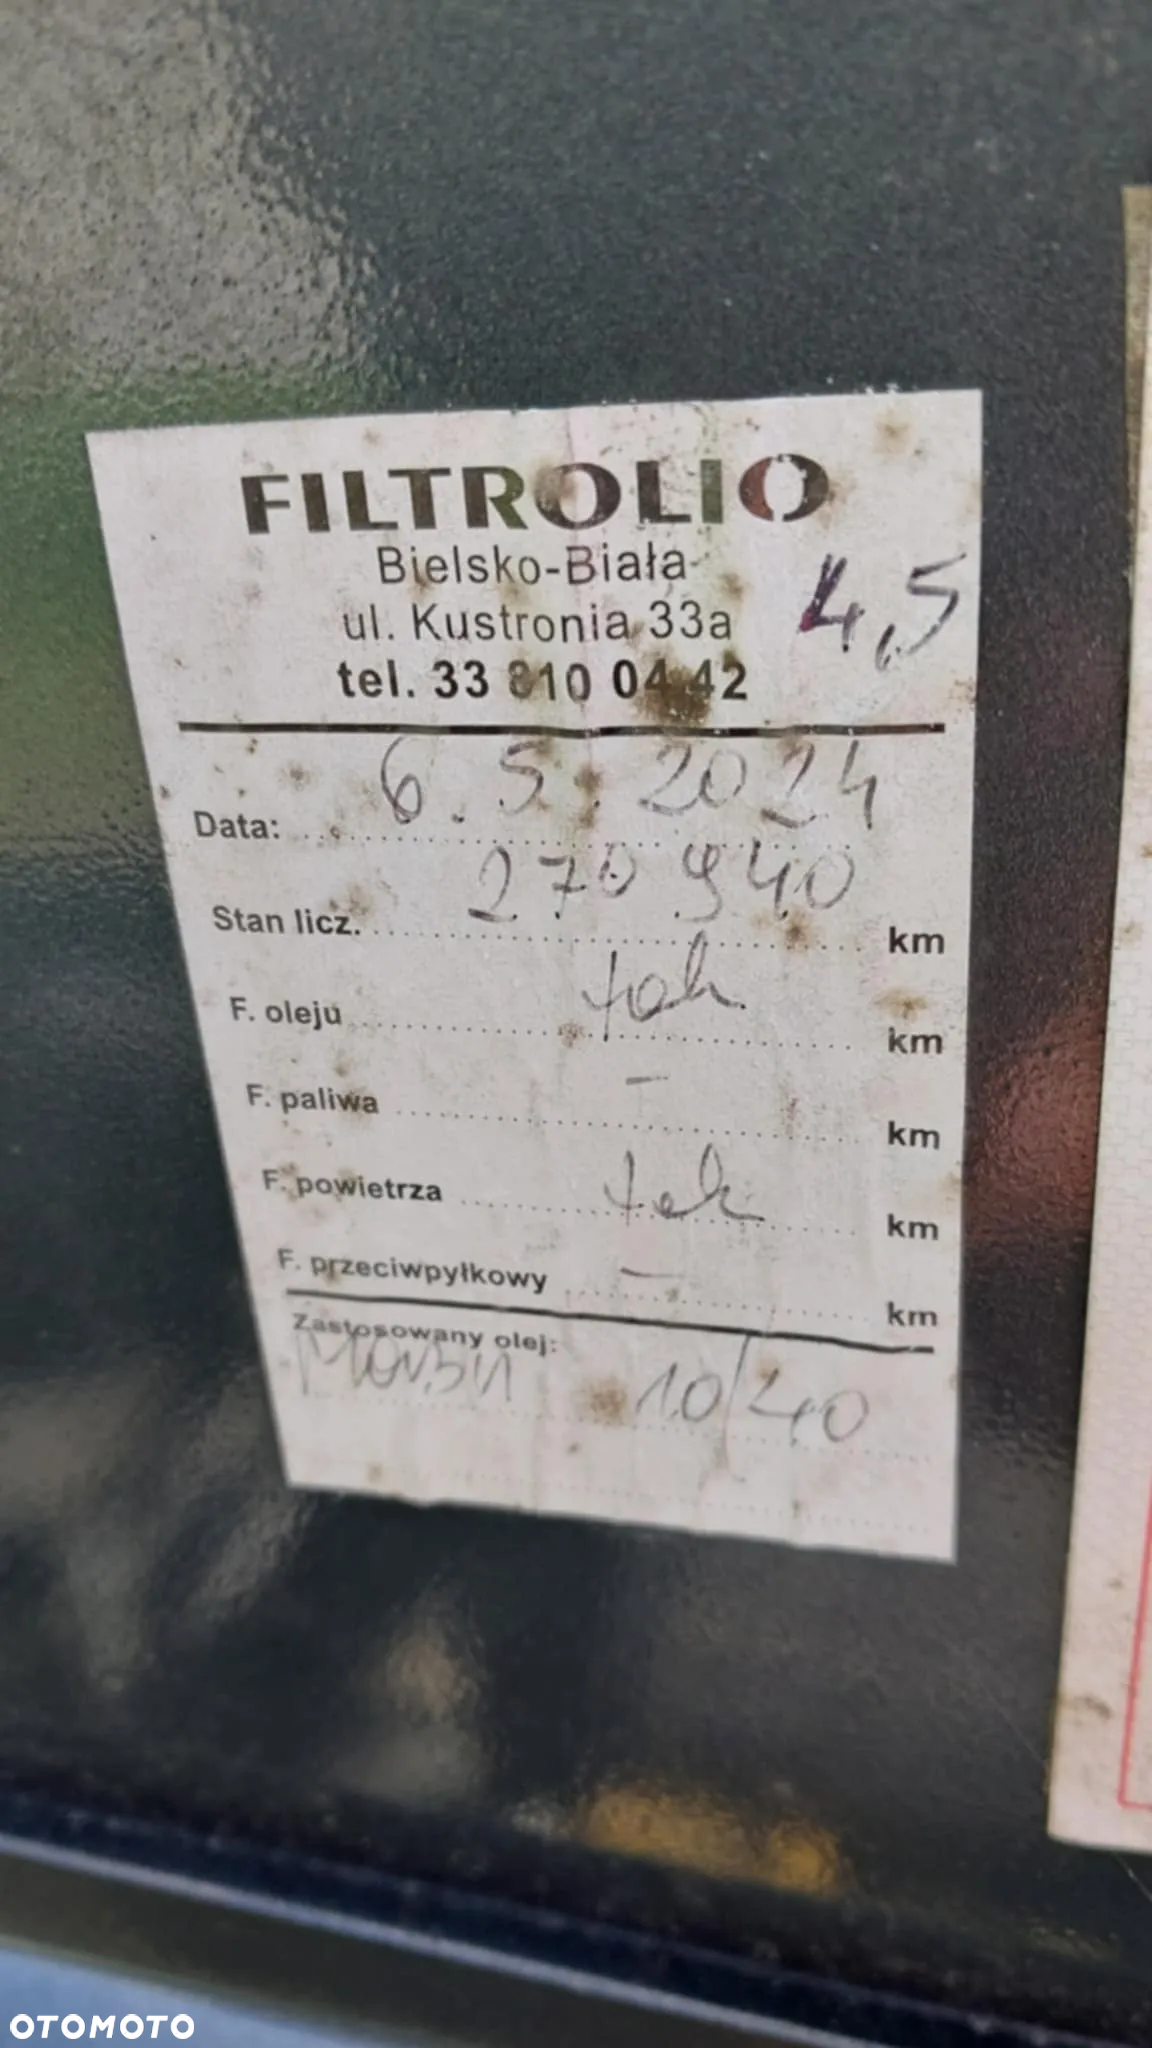 FILTROLIO
Bielsko-Biała
ul. Kustronia 33a 4,5
tel. 33 810 04 42
Data: 6.5.2024
Stan licz. 270 940 km
F. oleju tak km
F. paliwa - km
F. powietrza tak km
F. przeciwpyłkowy - km
Zastosowany olej:
10/40
OTOMOTO